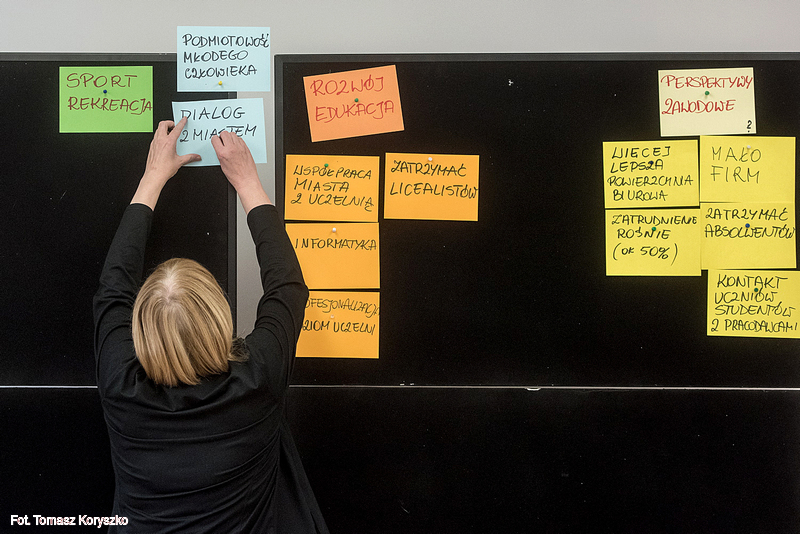 PODMIOTOWOŚĆ
MŁODEGO
CZŁOWIEKA
SPORT
REKREACJA
DIALOG
Z MIASTEM
ROZWÓJ
EDUKACJA
WSPÓŁPRACA
MIASTA
Z UCZELNIĄ
ZATRZYMAĆ
LICEALISTÓW
INFORMATYKA
UCZELNI
PERSPEKTYWY
ZAWODOWE
?
WIĘCEJ
LEPSZA
POWIERZCHNIA
BIUROWA
MAŁO
FIRM
ZATRUDNIENIE
ROŚNIE
(ok 50%)
ZATRZYMAĆ
ABSOLWENTÓW
KONTAKT
UCZNIÓW
STUDENTÓW
Z PRACODAWCAMI
Fot. Tomasz Koryszko